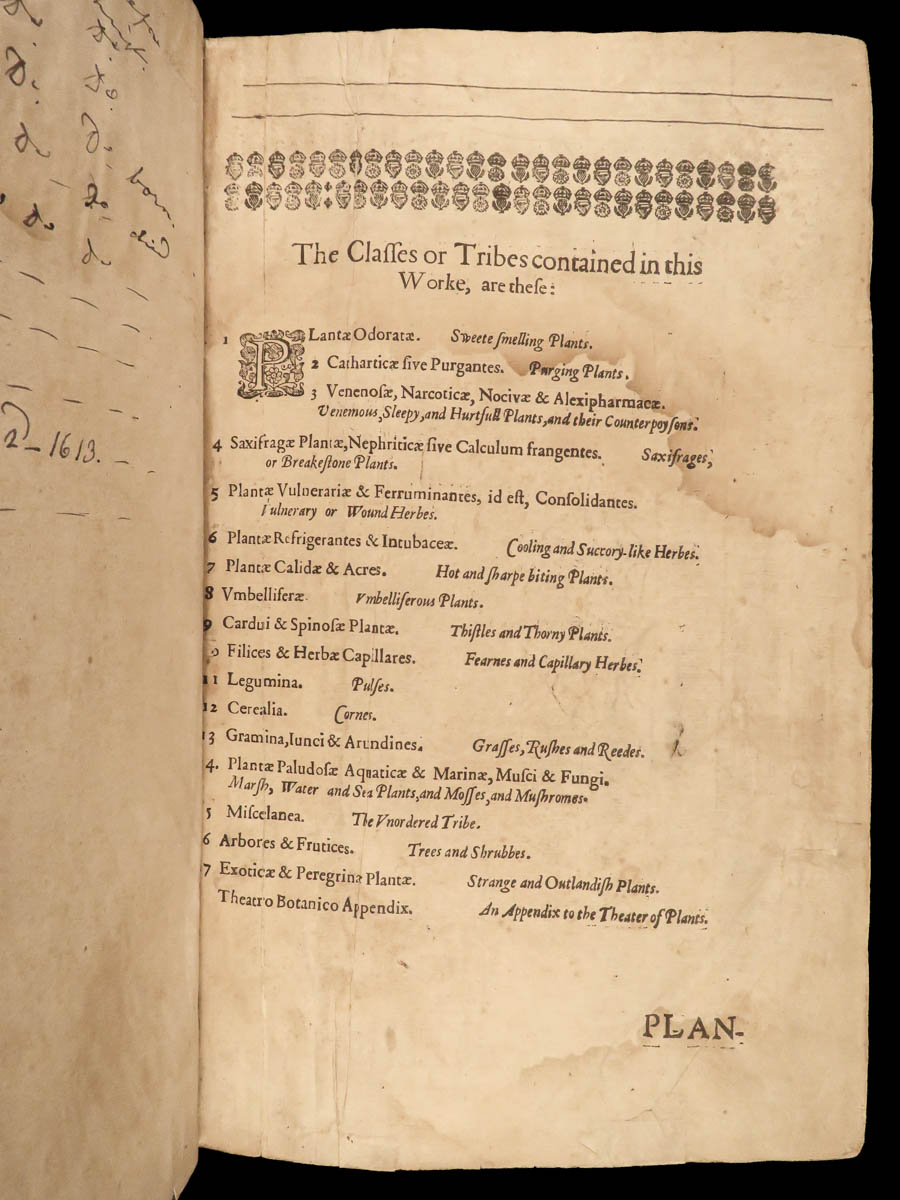 2 – 1613.
The Claſſes or Tribes contained in this
Worke, are theſe:
1 PLantæ Odoratæ. Sweete ſmelling Plants.
2 Catharticæ ſive Purgantes. Purging Plants.
3 Venenoſæ, Narcoticæ, Nocivæ & Alexipharmacæ.
Venemous, Sleepy, and Hurtfull Plants, and their Counterpoyſons.
4 Saxifragæ Plantæ, Nephriticæ ſive Calculum frangentes. Saxifrages,
or Breakeſtone Plants.
5 Plantæ Vulnerariæ & Ferruminantes, id eſt, Conſolidantes.
Vulnerary or Wound Herbes.
6 Plantæ Refrigerantes & Intubaceæ. Cooling and Succory-like Herbes.
7 Plantæ Calidæ & Acres. Hot and ſharpe biting Plants.
8 Vmbelliferæ. Vmbelliferous Plants.
9 Cardui & Spinoſæ Plantæ. Thiſtles and Thorny Plants.
0 Filices & Herbæ Capillares. Fearnes and Capillary Herbes.
11 Legumina. Pulſes.
12 Cerealia. Cornes.
13 Gramina, Iunci & Arundines. Graſſes, Ruſhes and Reedes.
4. Plantæ Paludoſæ Aquaticæ & Marinæ, Muſci & Fungi.
Marſh, Water and Sea Plants, and Moſſes, and Muſhromes.
5 Miſcelanea. The Vnordered Tribe.
6 Arbores & Frutices. Trees and Shrubbes.
7 Exoticæ & Peregrinæ Plantæ. Strange and Outlandiſh Plants.
Theatro Botanico Appendix. An Appendix to the Theater of Plants.
PLAN-